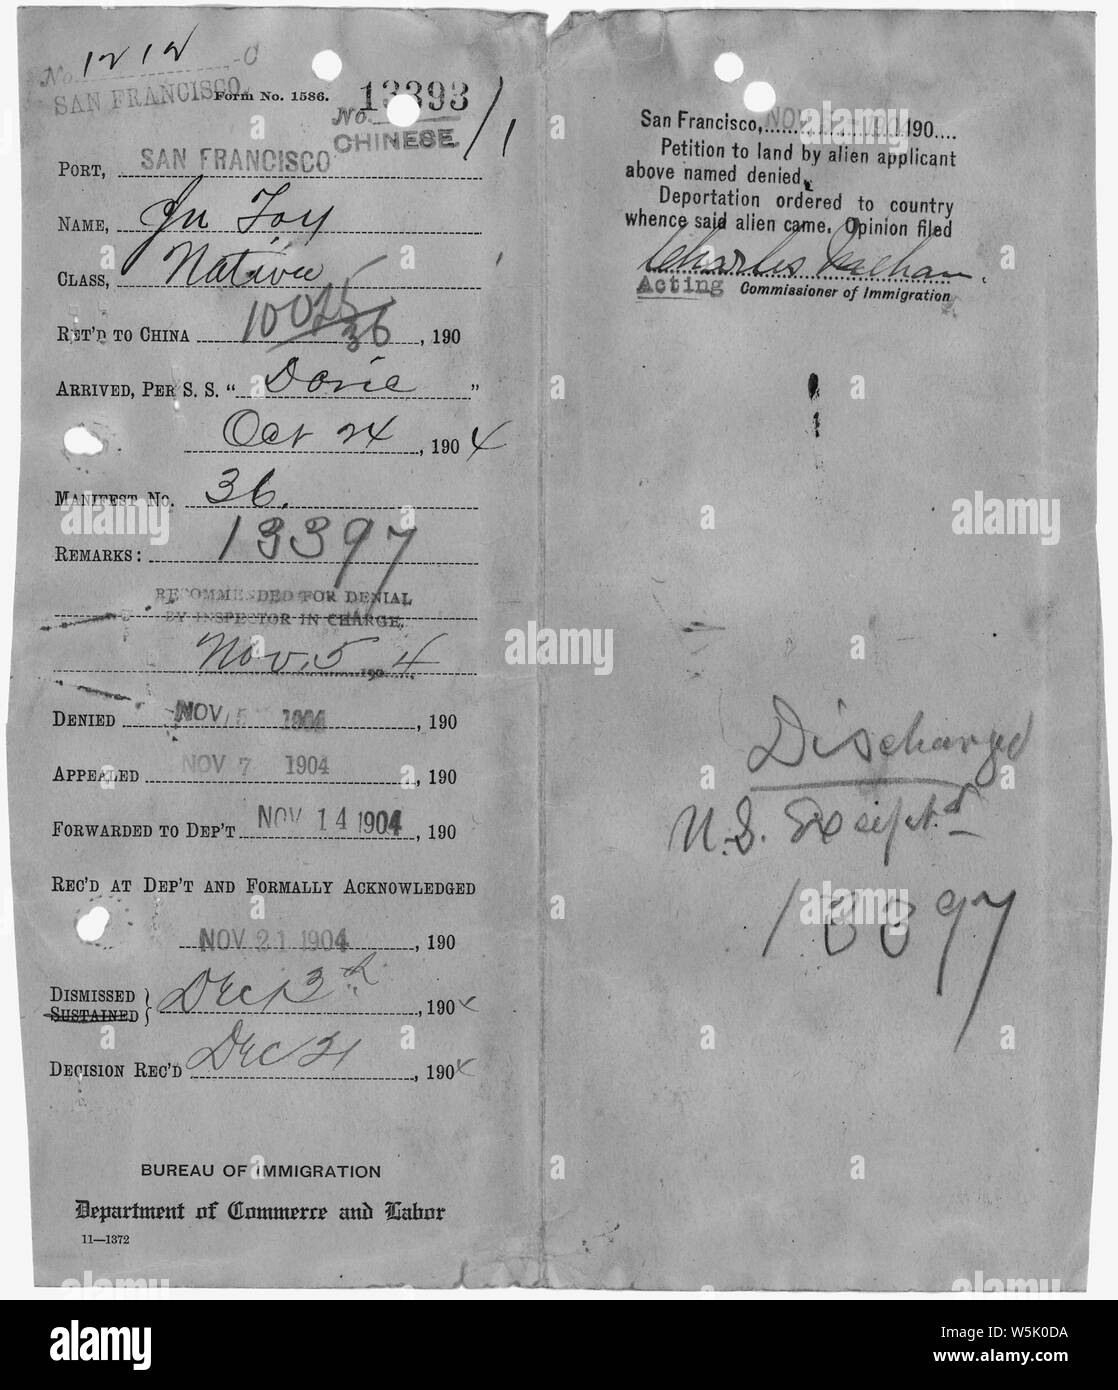 No. 1212
SAN FRANCISCO.
Form No. 1586.
No. 13393
CHINESE.
PORT, SAN FRANCISCO
NAME, Ju Toy
CLASS, Native
RET'D TO CHINA 10025/36, 190
ARRIVED, PER S. S. "Doric"
Oct 24, 1904
MANIFEST NO. 36.
REMARKS: 13397
RECOMMENDED FOR DENIAL
BY INSPECTOR IN CHARGE.
Nov. 5 190 4
DENIED NOV 5 1904, 190
APPEALED NOV 7 1904, 190
FORWARDED TO DEP'T NOV 14 1904, 190
REC'D AT DEP'T AND FORMALLY ACKNOWLEDGED
NOV 21 1904, 190
DISMISSED
SUSTAINED } Dec 13th, 1904
DECISION REC'D Dec 21, 1904
BUREAU OF IMMIGRATION
Department of Commerce and Labor
11—1372
San Francisco, NOV 1904 190....
Petition to land by alien applicant
above named denied.
Deportation ordered to country
whence said alien came. Opinion filed
Charles Mehan.
Acting Commissioner of Immigration
Discharged
U.S.
13397
alamy
alamy
Image ID: W5K0DA
www.alamy.com